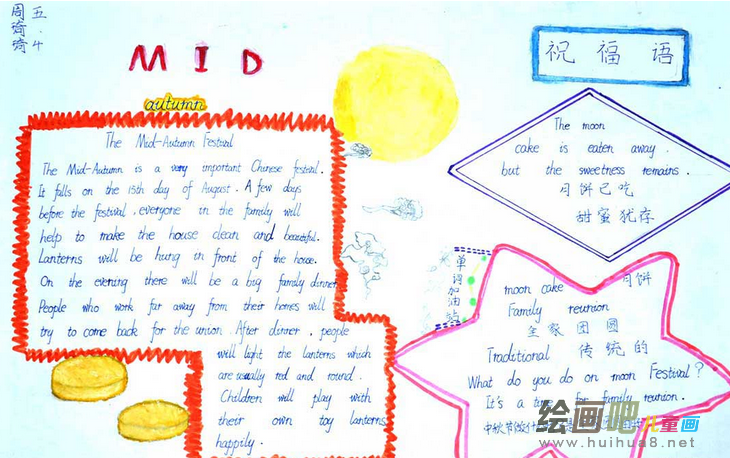 五.4
周琦琦
MID
autumn
The Mid-Autumn Festival
The Mid-Autumn is a very important Chinese festival.
It falls on the 15th day of August. A few days
before the festival, everyone in the family will
help to make the house clean and beautiful.
Lanterns will be hung in front of the house.
On the evening there will be a big family dinner
People who work far away from their homes will
try to come back for the union. After dinner, people
will light the lanterns which
are usually red and round.
Children will play with
their own toy lanterns
happily.
祝福语
The moon
cake is eaten away.
but the sweetness remains.
月饼已吃
甜蜜犹存
单词加油站
moon cake 月饼
Family reunion
全家团圆
Traditional 传统的
What do you do on moon Festival?
It's a time for family reunion.
中秋节做什
绘画吧儿童画
www.huihua8.net